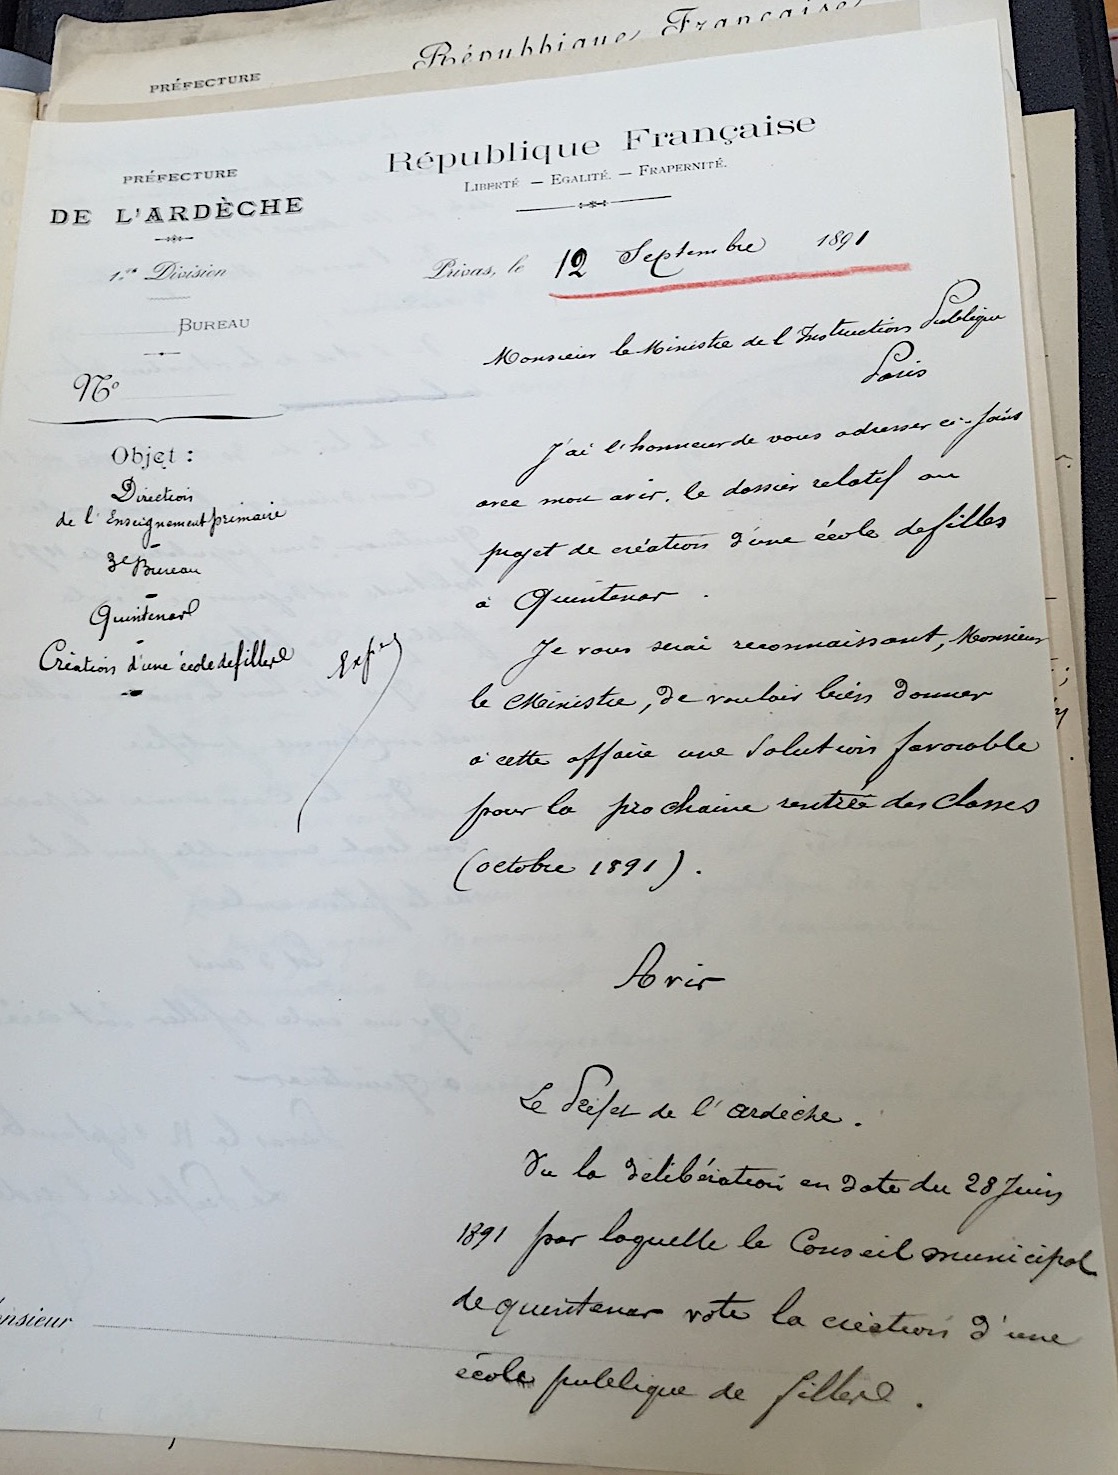 République Française
PRÉFECTURE
République Française
LIBERTÉ — EGALITÉ. — FRAPERNITÉ.
PRÉFECTURE
DE L'ARDÈCHE
1.re Division
BUREAU
No
Privas, le 12 Septembre 1891
Monsieur le Ministre de l'Instruction Publique
Paris
Objet :
Direction
de l'Enseignement primaire
3e Bureau
Quintenas
Création d'une école de filles
J'ai l'honneur de vous adresser ci-joint
avec mon avis, le dossier relatif au
projet de création d'une école de filles
à Quintenas.
Je vous serai reconnaissant, Monsieur
le Ministre, de vouloir bien donner
à cette affaire une solution favorable
pour la prochaine rentrée des classes
(octobre 1891).
Avis
Le Préfet de l'ardèche.
Vu la délibération en date du 28 Juin
1891 par laquelle le Conseil municipal
de quintenas vote la création d'une
école publique de filles.
onsieur